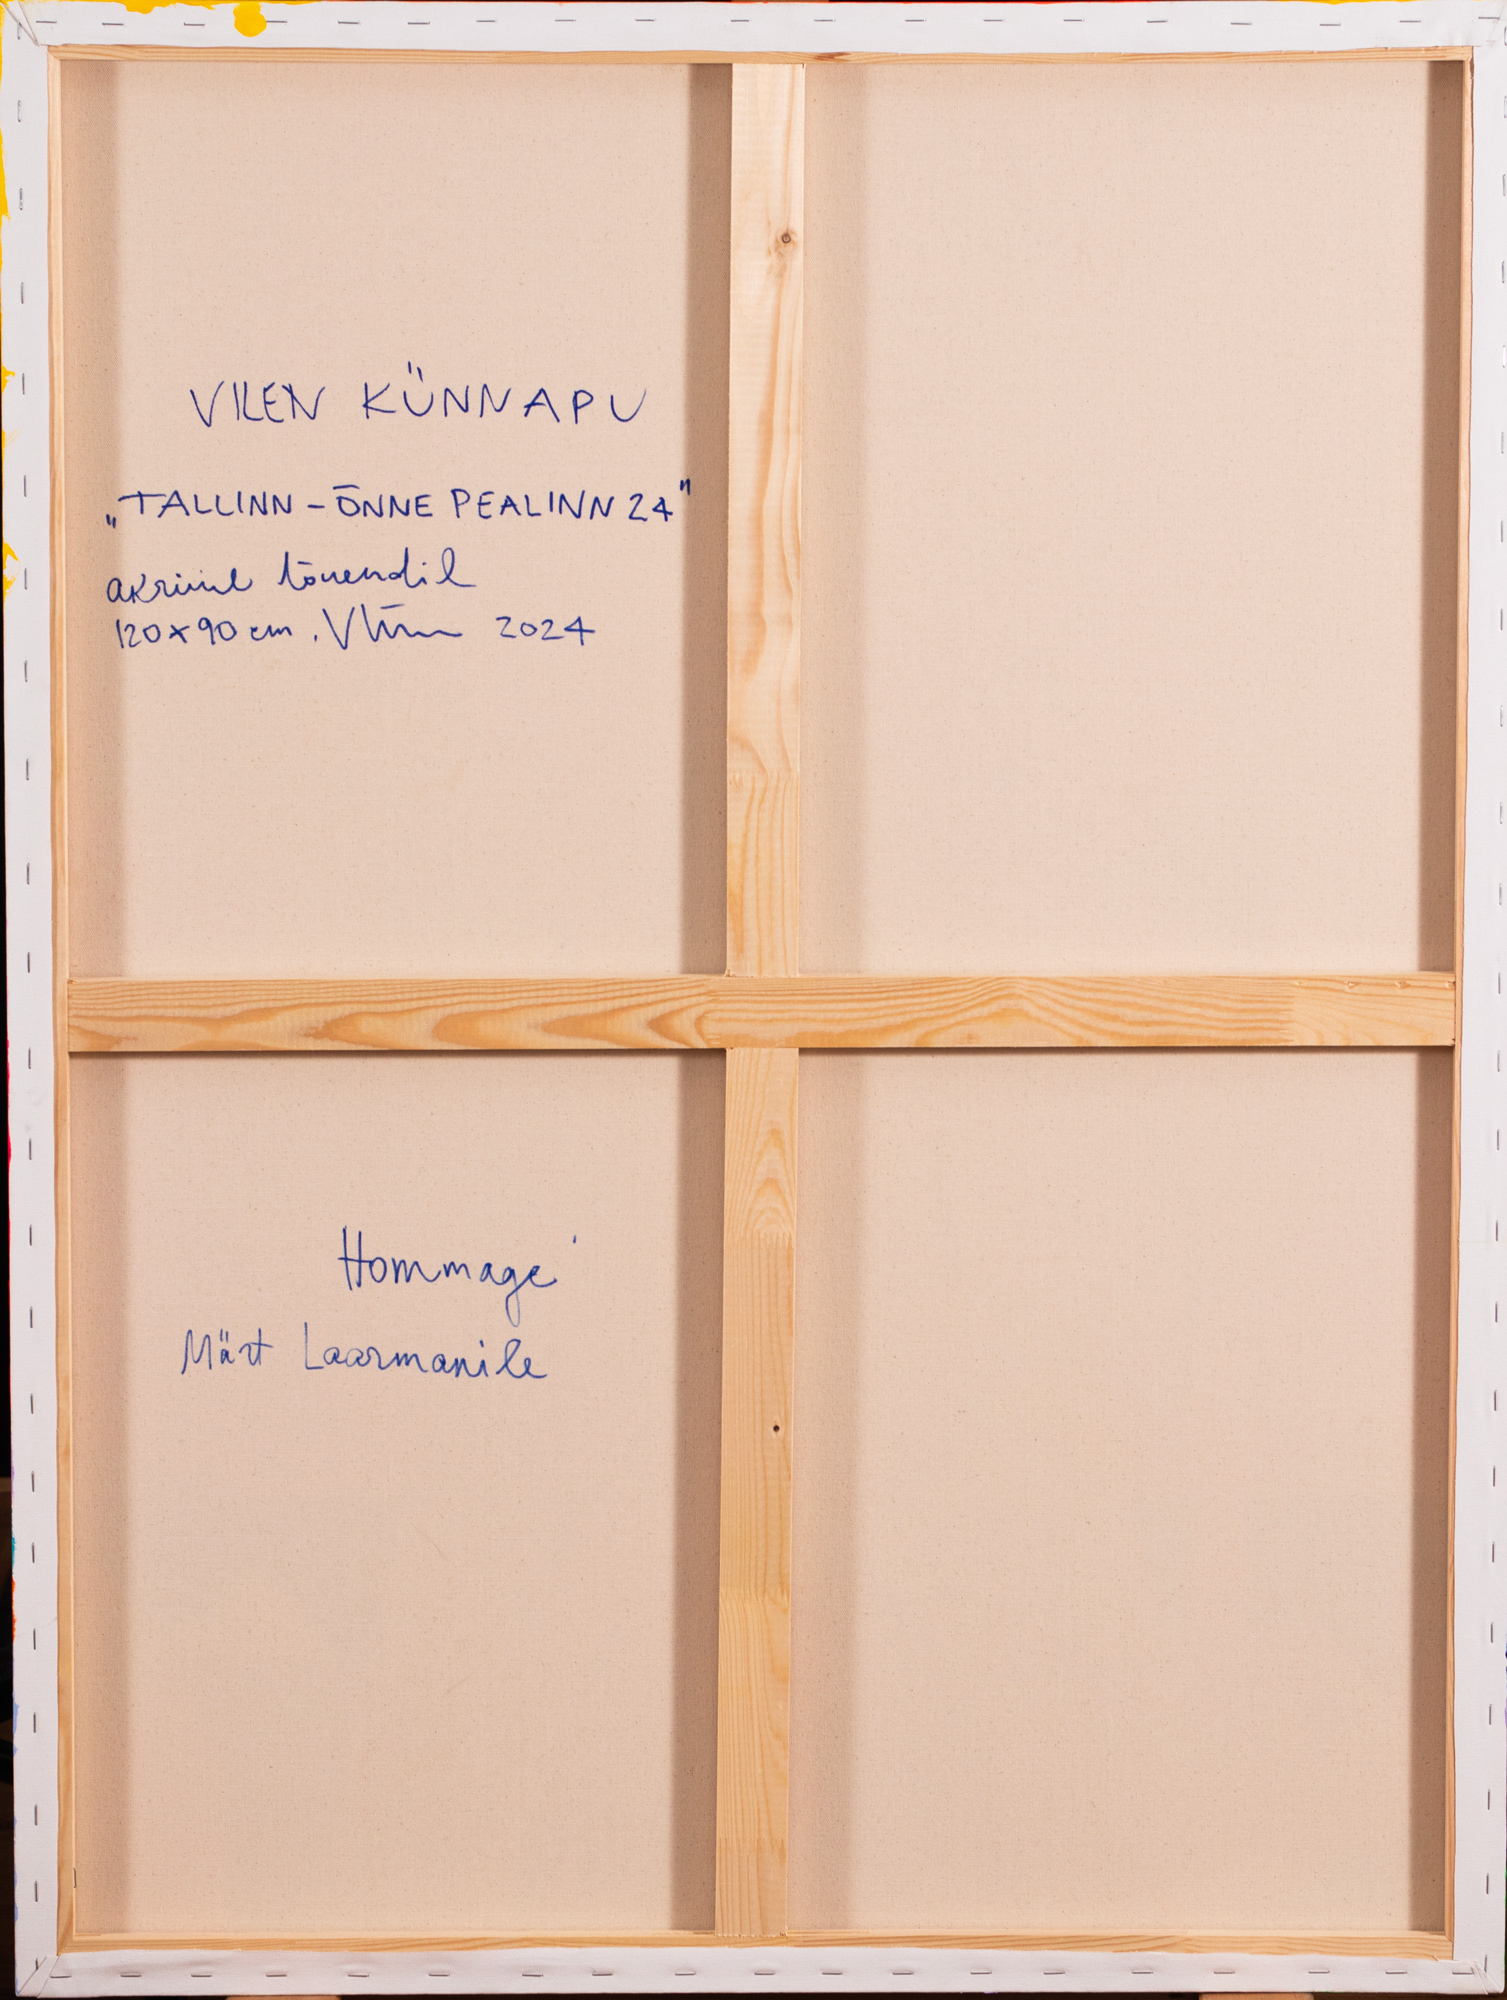 VILEN KÜNNAPU
„TALLINN - ÕNNE PEALINN 24"
akrüül lõuendil
120x90 cm. 2024
Hommage
Märt Laarmanile